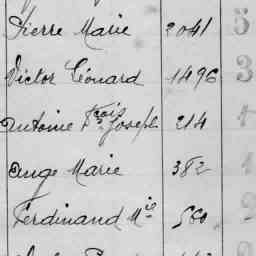 Pierre Marie 2041 5
Victor Léonard 1496 3
Antoine Fçois Joseph 214
Ange Marie 382
Ferdinand Mie 560